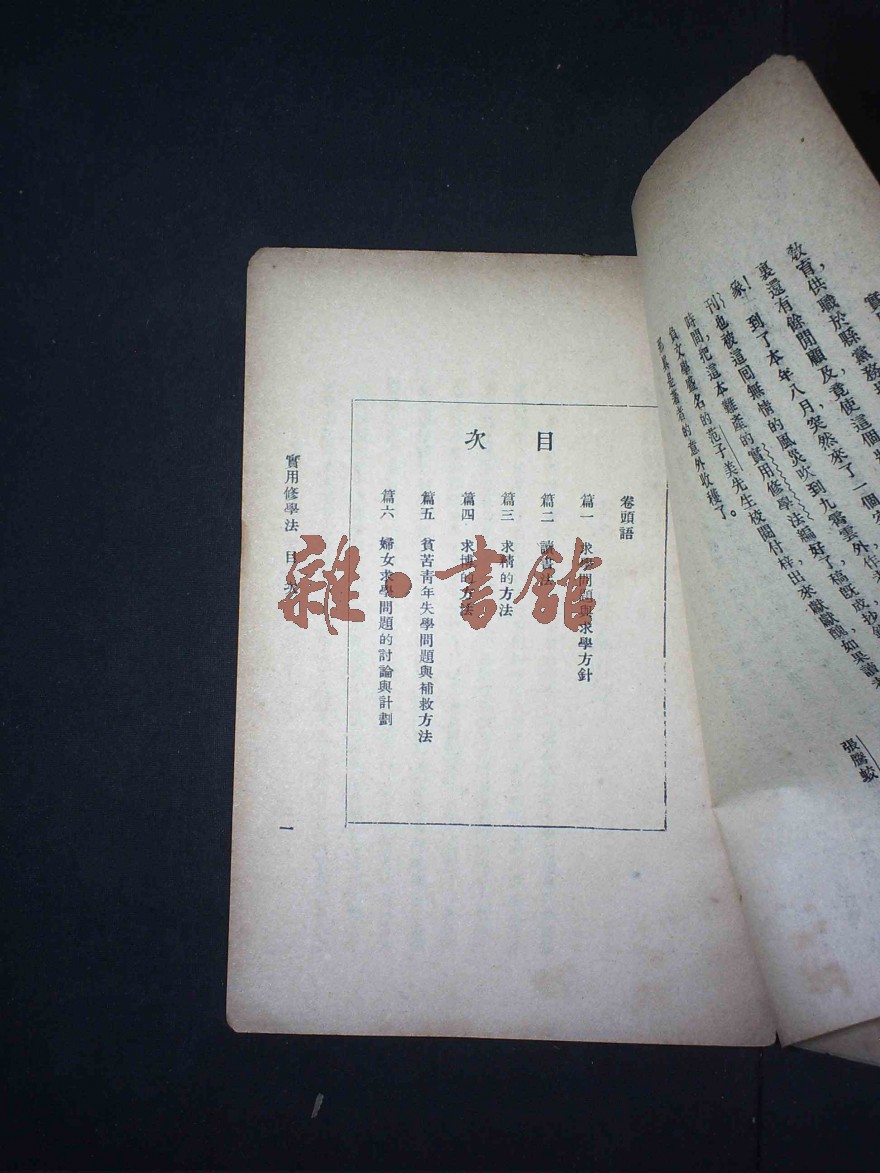 教育，供職於縣黨務
裏還有餘閒顧及，竟使這個
象！到了本年八月，突然來了一個
刊也被這回無情的風災吹到九霄雲外
時間，把這本難產的實用修學法編好了，稿既成，抄
文學盛名的范子美先生校閱付梓，出來獻獻醜，如果讀
是著者的意外收穫了。
張騰
目次
卷頭語
篇一 求學問題與求學方針
篇二 讀書法
篇三 求精的方法
篇四 求博的方法
篇五 貧苦青年失學問題與補救方法
篇六 婦女求學問題的討論與計劃
實用修學法 目次
一
雜·書館